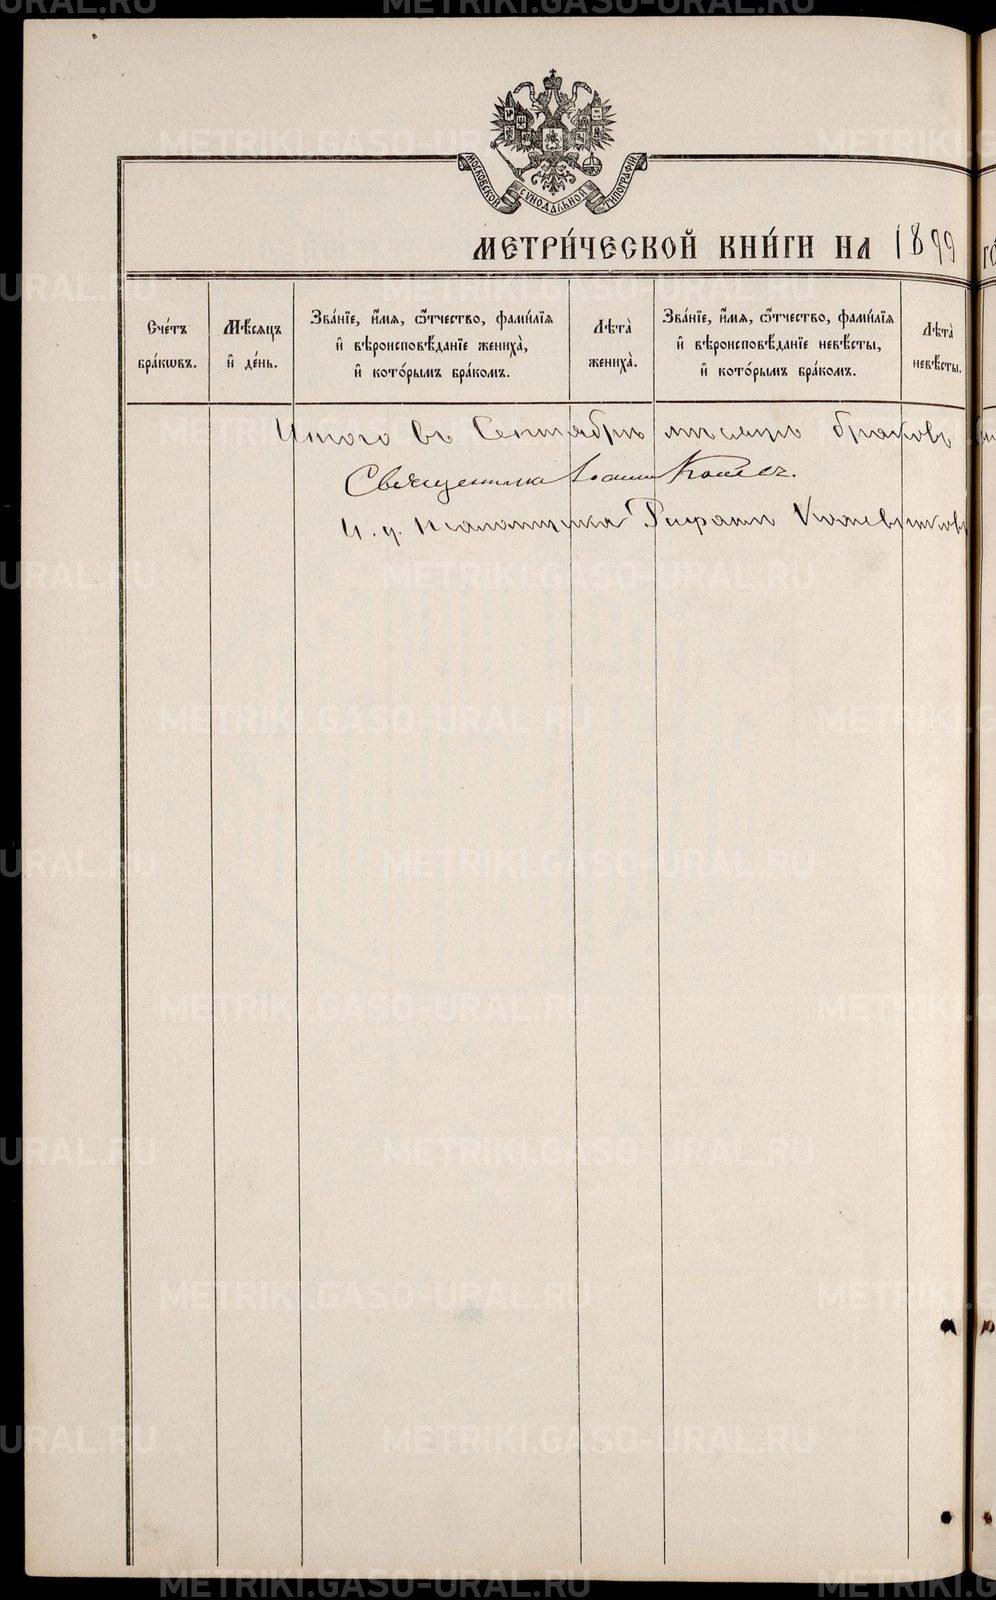 МОСКОВСКОЙ СѴНОДАЛЬНОЙ ТИПОГРАФІИ
МЕТРИ́ЧЕСКОЙ КНИ́ГИ НА 1899
Сче́тъ бра́кѡвъ.
Мѣ́сѧцъ и҆ де́нь.
Зва́нїе, и҆́мѧ, ѻ҆́тчество, фами́лїѧ
и҆ вѣроисповѣ́данїе жениха̀,
и҆ кото́рымъ бра́комъ.
Лѣта̀ жениха̀.
Зва́нїе, и҆́мѧ, ѻ҆́тчество, фами́лїѧ
и҆ вѣроисповѣ́данїе невѣ́сты,
и҆ кото́рымъ бра́комъ.
Лѣта̀ невѣ́сты.
Итого въ Сентябрѣ мѣсяцѣ браковъ
Священникъ Іоаннъ
И. д. Псаломщика
METRIKI.GASO-URAL.RU